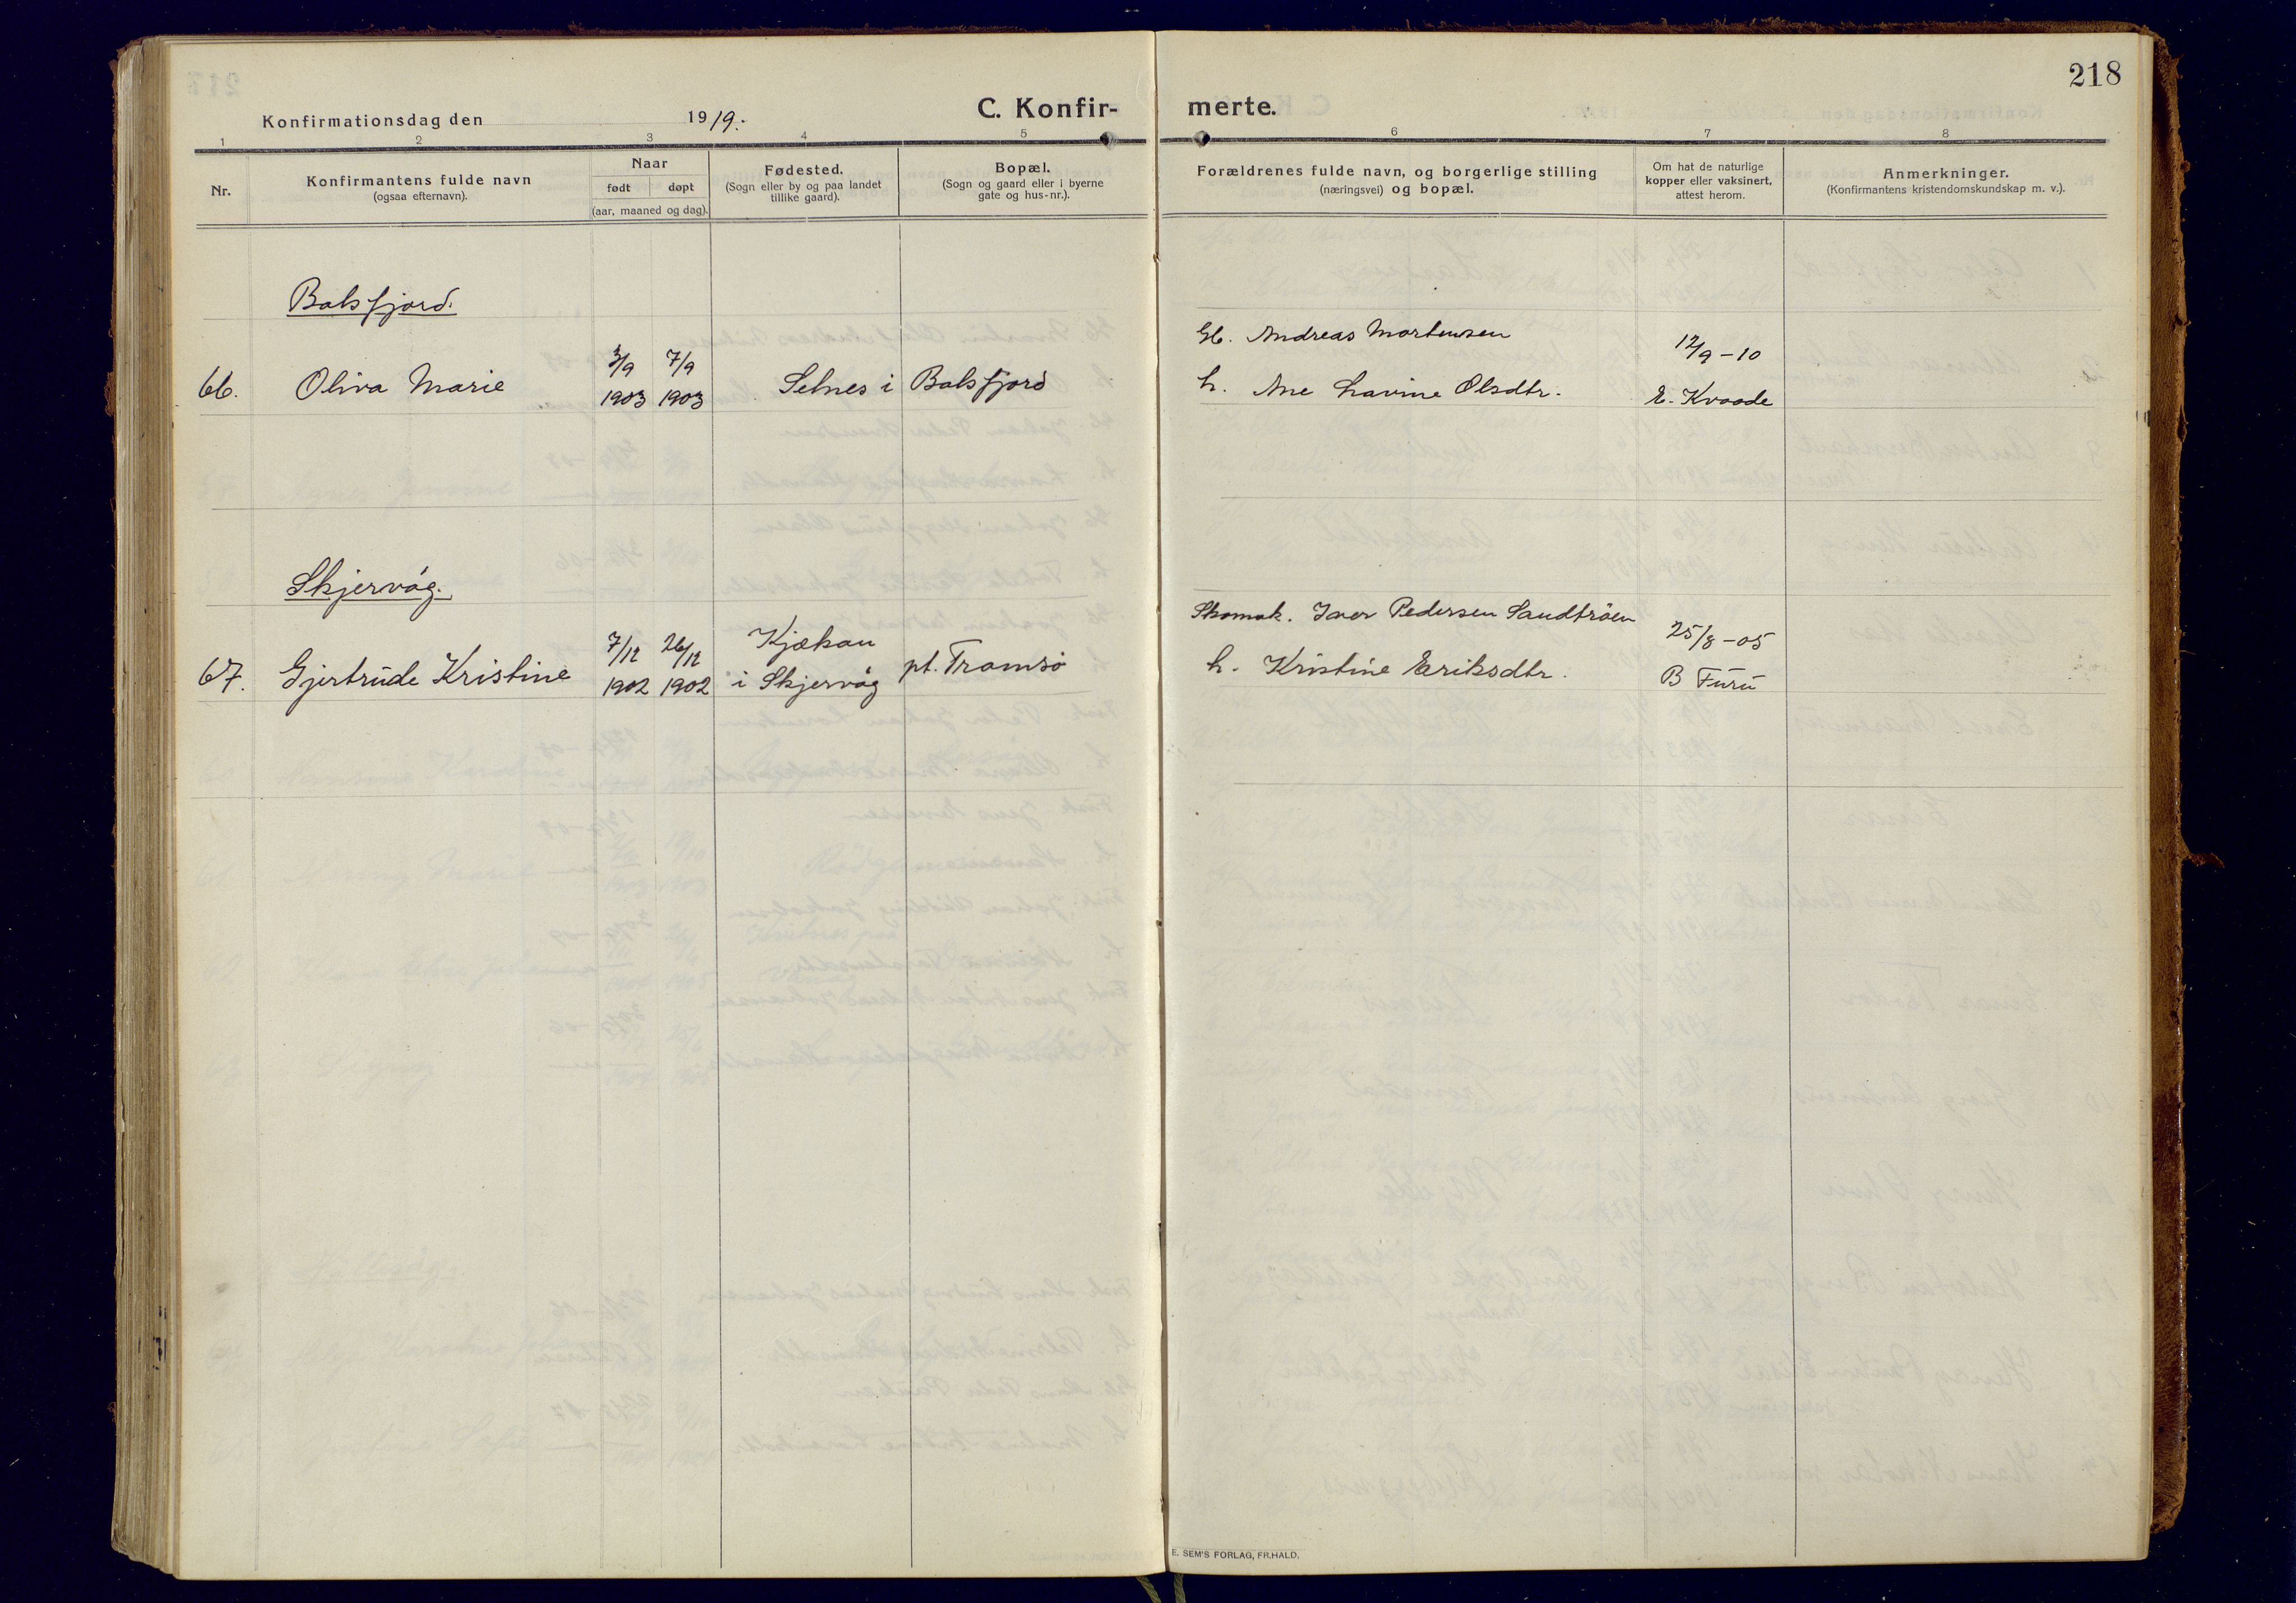 218
Konfirmationsdag den 1919. C. Konfir- merte.
1 2 3 4 5 6 7 8
Nr.
Konfirmantens fulde navn
(ogsaa efternavn).
Naar
født døpt
(aar, maaned og dag).
Fødested.
(Sogn eller by og paa landet
tillike gaard).
Bopæl.
(Sogn og gaard eller i byerne
gate og hus-nr.).
Forældrenes fulde navn, og borgerlige stilling
(næringsvei) og bopæl.
Om hat de naturlige
kopper eller vaksinert,
attest herom.
Anmerkninger.
(Konfirmantens kristendomskundskap m. v.).
Balsfjord.
Gb. Andreas Mortensen
3/9 7/9 12/9-10
66. Oliva Marie 1903 1903 Selnes i Balsfjord h. Ane Lavine Olsdtr. E. Kvaade
Skjervøg.
Skomak. Iver Pedersen Sandtrøen
7/12 26/12 Kjækan 25/8-05
67. Gjertrude Kristine 1902 1902 i Skjervøg pt. Tromsø h. Kristine Eriksdtr. B Furu
E. SEM'S FORLAG, FR.HALD.